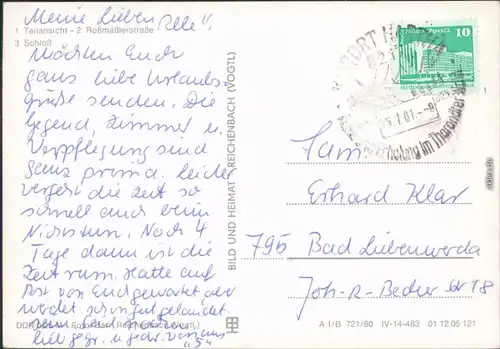 Meine Lieben Alle!
1 Teilansicht – 2 Roßmäßlerstraße
3 Schloß
Möchten Euch
ganz liebe Urlaubs-
grüße senden. Die
Gegend, Zimmer u.
Verpflegung sind
ganz prima. Leider
vergeht die Zeit so
schnell auch beim
Nichtstun. Noch 4
Tage dann ist die
Zeit rum. Hatte auf
Post von Euch gewartet aber
BILD UND HEIMAT REICHENBACH (VOGTL)
10
Erholung im Tharandter
Fam.
Erhard Klar
795 Bad Liebenwerda
Joh-R-Becher Str 18
A 1/B 721/80 IV-14-463 01 12 05 121